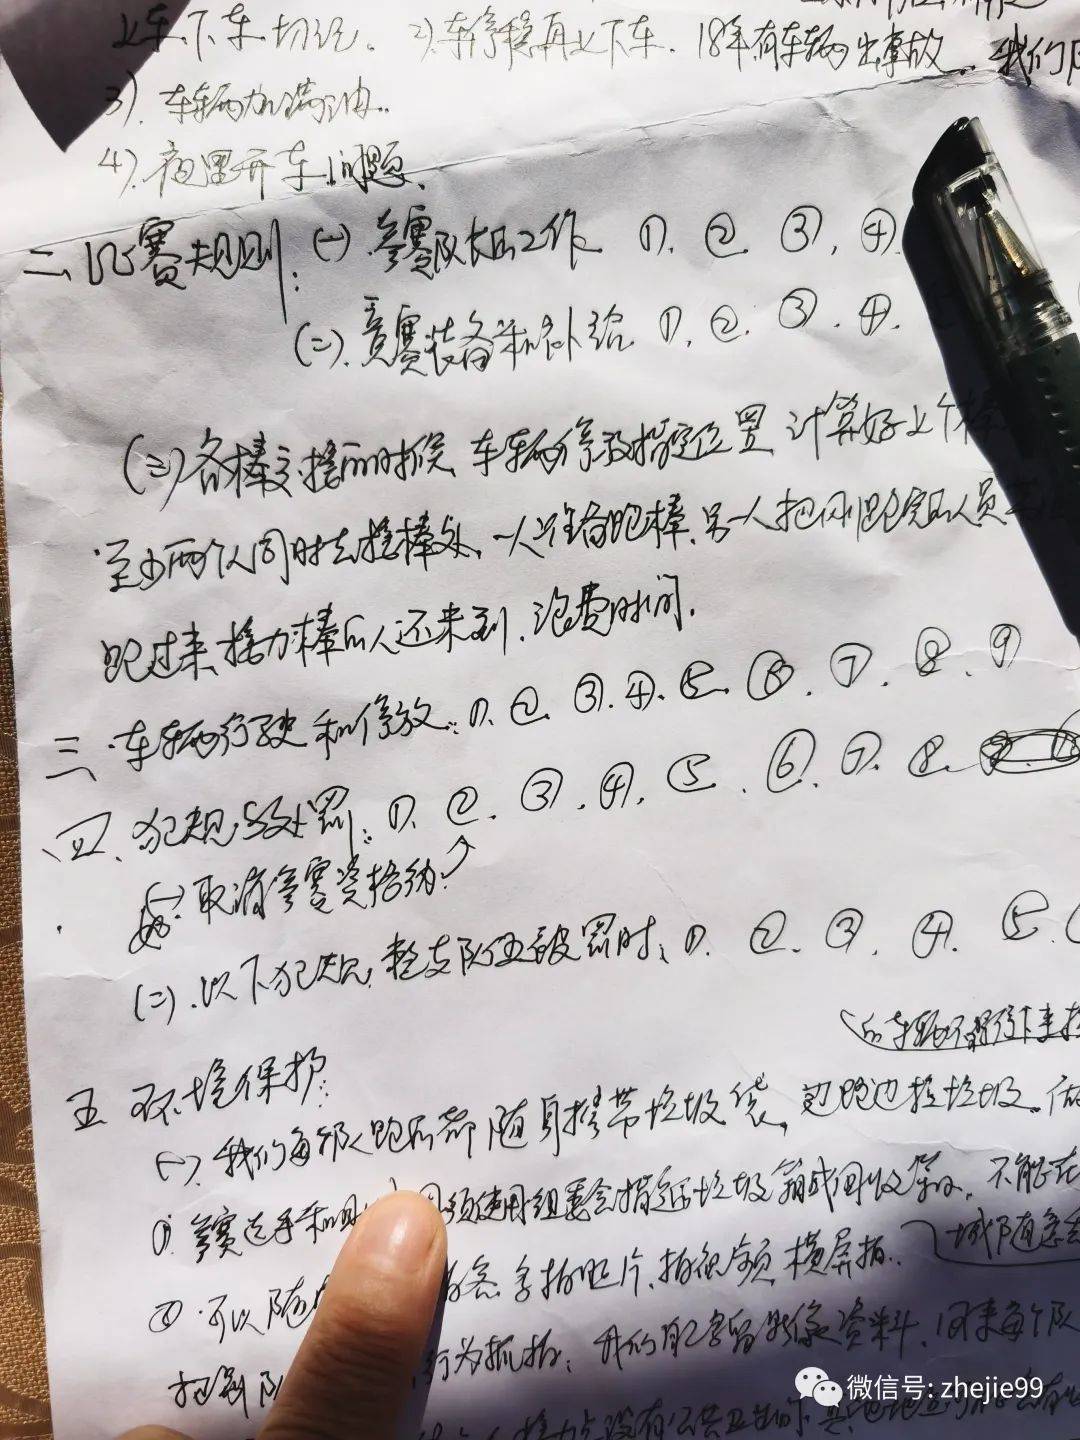 上车下车切记。2).车停稳再上下车.18年有车辆出事故..我们
3).车辆加满油..
4).夜里开车问题.
二、比赛规则:(一)参赛队长的工作 ①.②.③.④.
(二).竞赛装备和补给 ①.②.③.④.
(三)各棒交接的时候 车辆停放指定位置 计算好上个棒
至少两个人同时去接棒处.一人准备跑棒.另一人把刚跑完的人员
跑过来,接力棒的人还未到.浪费时间.
三.车辆行驶和停放:①.②.③.④.⑤.⑥.⑦.⑧.⑨
四.犯规与处罚:①.②.③.④.⑤.⑥.⑦.⑧.
(一)取消参赛资格的
(二).以下犯规,整支队伍被罚时:①.②.③.④.⑤.
的车辆不得停下来
五 环境保护:
(一).我们每个队跑的都随身携带垃圾袋,边跑边捡垃圾.
①.参赛选手和 须使用组委会指定的垃圾箱或回收 .不能在
②.可以随 拍照片.拍视频 横屏拍.
行为抓拍:我们自己留影像资料.回来每个队
接力点设有公共卫生间.
微信号: zhejie99